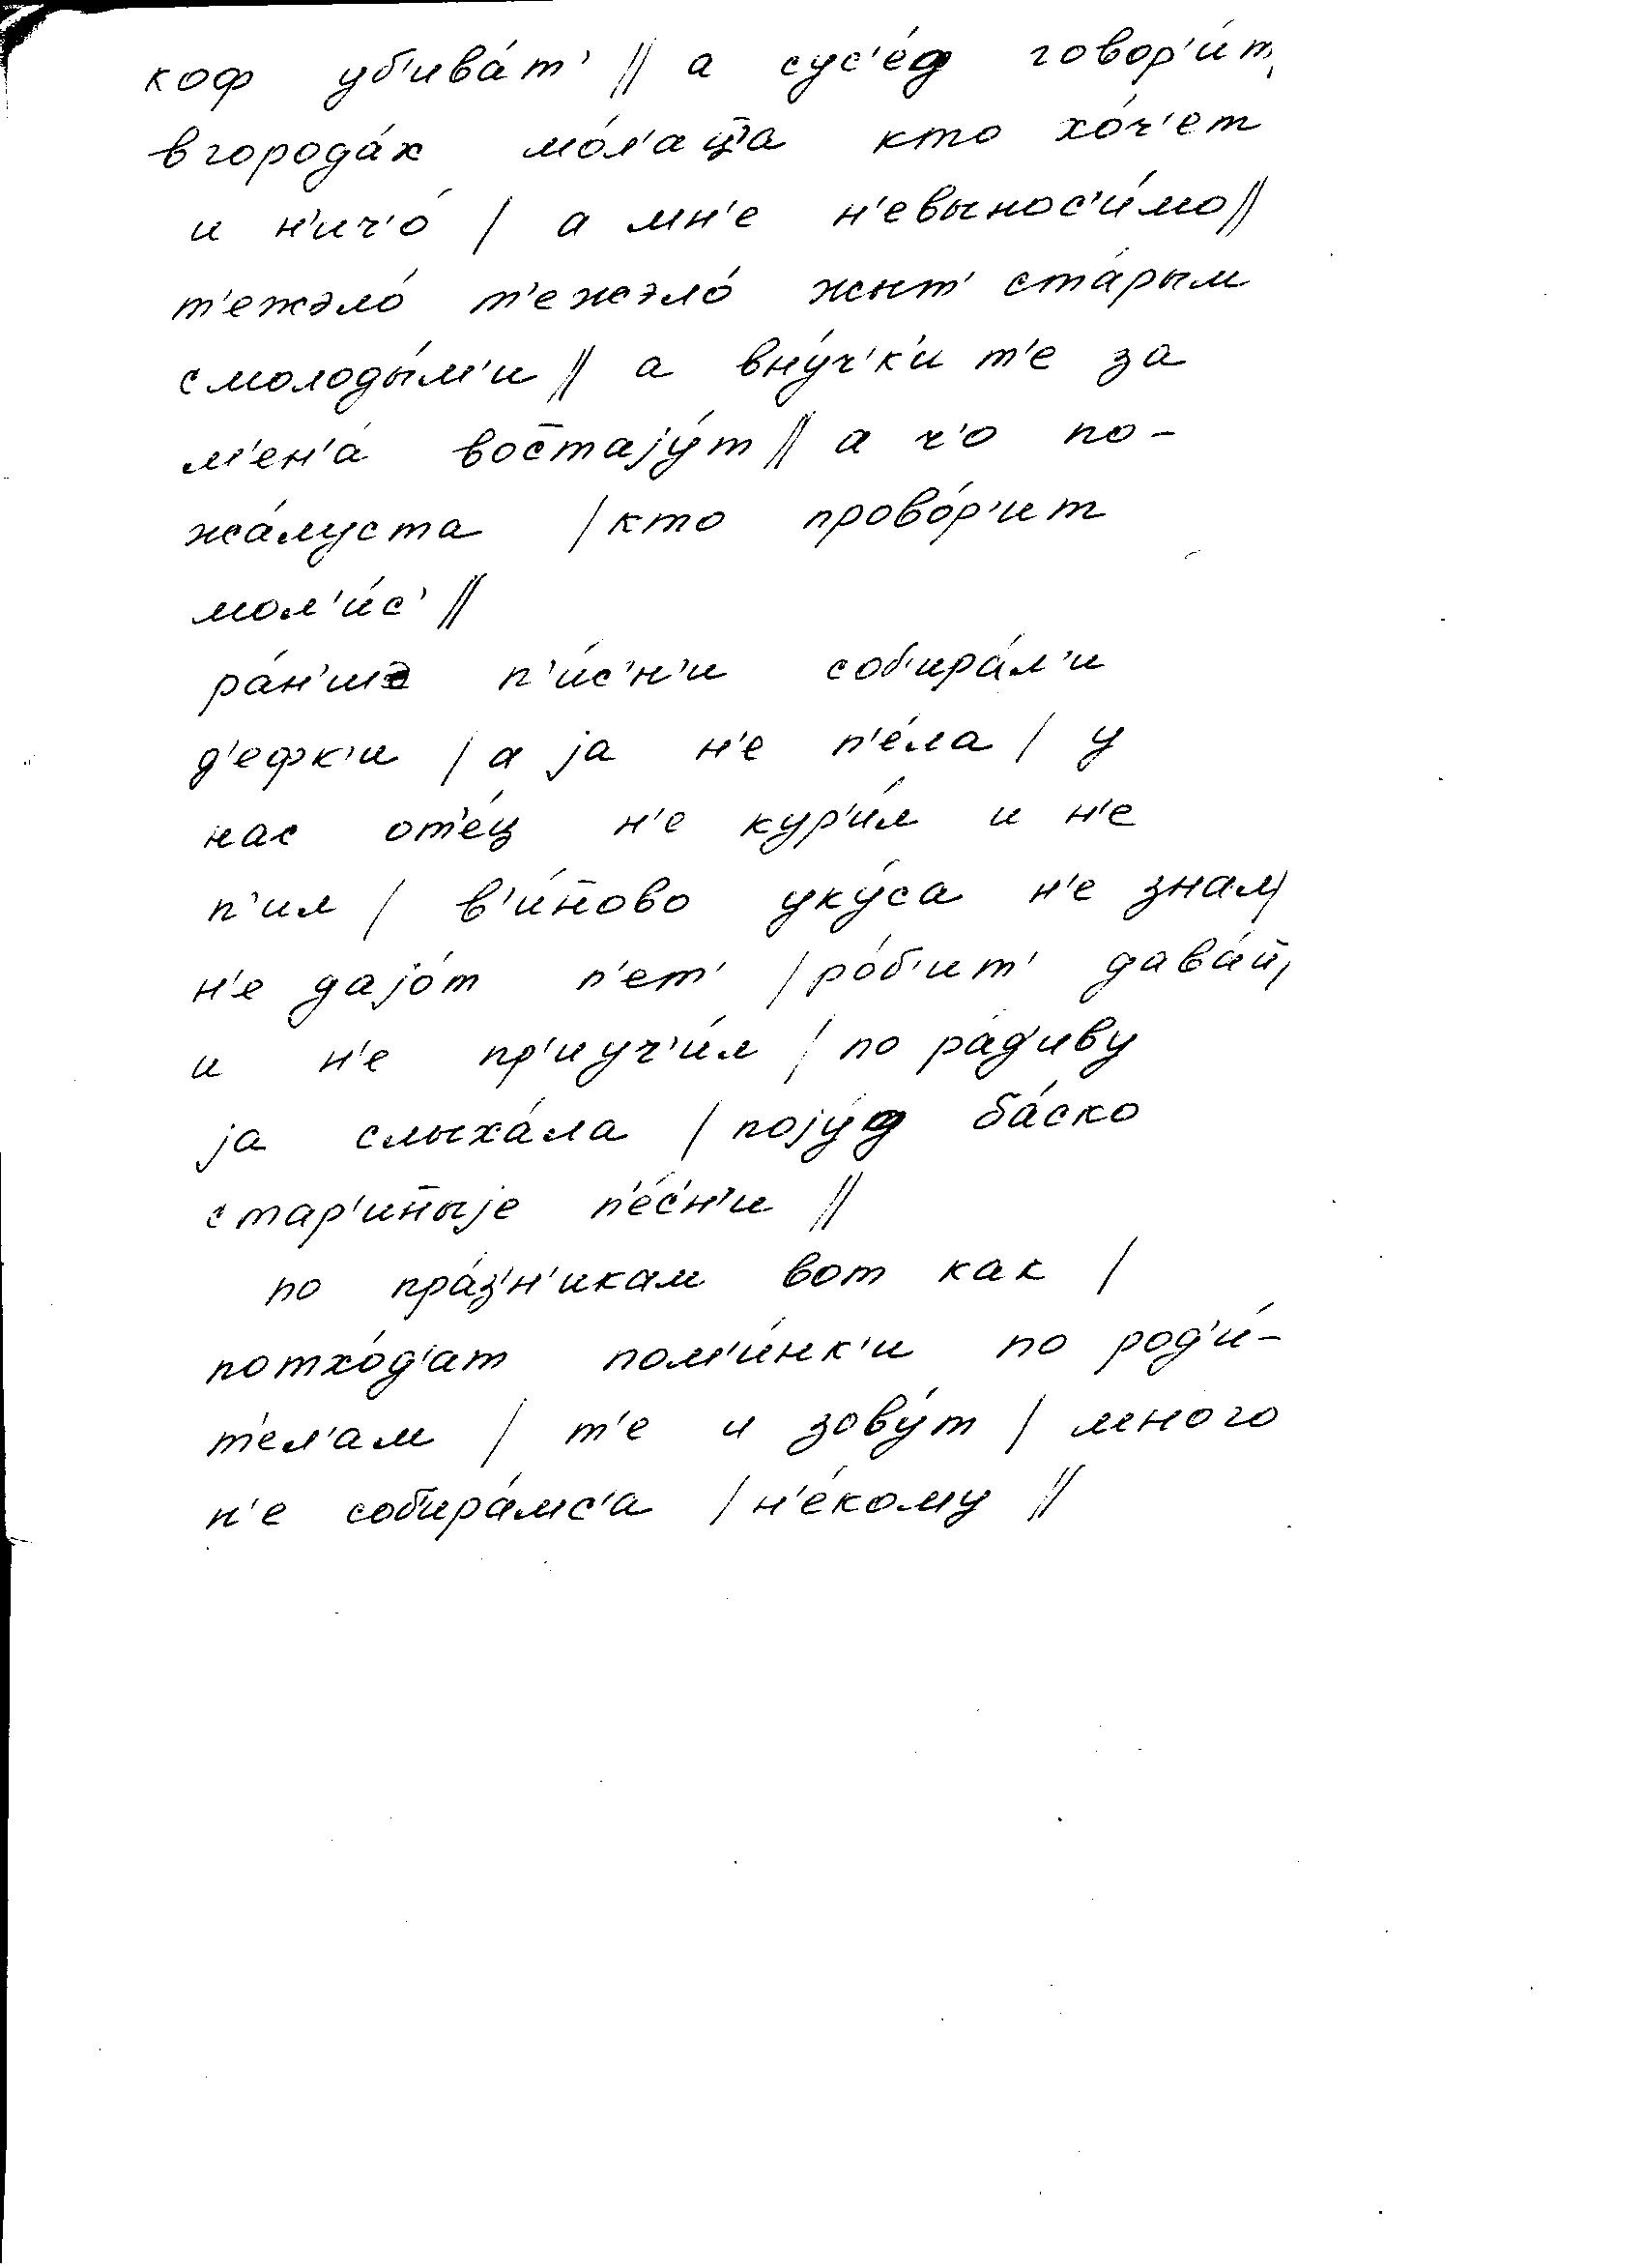 коф уб'ива́т' // а сус'е́д говор'и́т,
в города́х мо́л'ац̄а кто хо́ч'ет
и н'ич'о́ / а мн'е н'евынос'и́мо //
т'ежэло́ т'ежэло́ жыт' ста́рым
с молоды́м'и // а вну́ч'к'и т'е за
м'ен'а́ вос̄тају́т // а ч'о по-
жа́луста / кто прово́р'ит
мол'и́с' //
ра́н'шэ п'и́с'н'и соб'ира́л'и
д'ефк'и / а ја н'е п'е́ла / у
нас от'е́ц н'е кур'и́л и н'е
п'ил / в'и́н̄ово уку́са н'е знал /
н'е дајо́т п'ет' / ро́б'ит' дава́й /
и н'е пр'иуч'и́л / по ра́д'иву
ја слыха́ла / поју́д ба́ско
стар'ин̄ыје п'е́с'н'и //
по пра́з'н'икам вот как /
потхо́д'ат пом'и́нк'и по род'и́-
т'ел'ам / т'е и зову́т / много
н'е соб'ира́мс'а / н'е́кому //